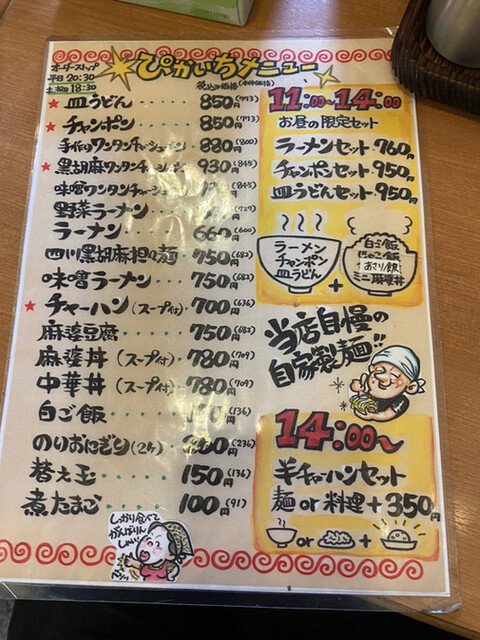 オーダーストップ
平日 20:30
土祝日 18:30
ぴかいちメニュー
税込み価格(本体価格)
★ 皿うどん 850円(773)
★ チャンポン 850円(773)
手作りワンタンチャーシューメン 880(800)
★ 黒胡麻ワンタンチャーシューメン 930(845)
味噌ワンタンチャーシュー (845)
野菜ラーメン 円(727)
ラーメン 660円(600)
四川黒胡麻担々麺 750円(682)
味噌ラーメン 750円(682)
★ チャーハン(スープ付) 700円(636)
麻婆豆腐 750円(682)
麻婆丼(スープ付) 780円(709)
中華丼(スープ付) 780円(709)
白ご飯 円(136)
のりおにぎり(2ヶ) 円(236)
替え玉 150円(136)
煮たまご 100円(91)
しっかり食べて
がんばりん
しゃい
11:00~14:00
お昼の限定セット
ラーメンセット 760円
チャンポンセット 950円
皿うどんセット 950円
ラーメン
チャンポン
皿うどん
+
白ご飯
じゃこ飯
あさり飯
ミニ麻婆丼
当店自慢の
自家製麺!!
14:00~
半チャーハンセット
麺 or 料理 + 350円
or +